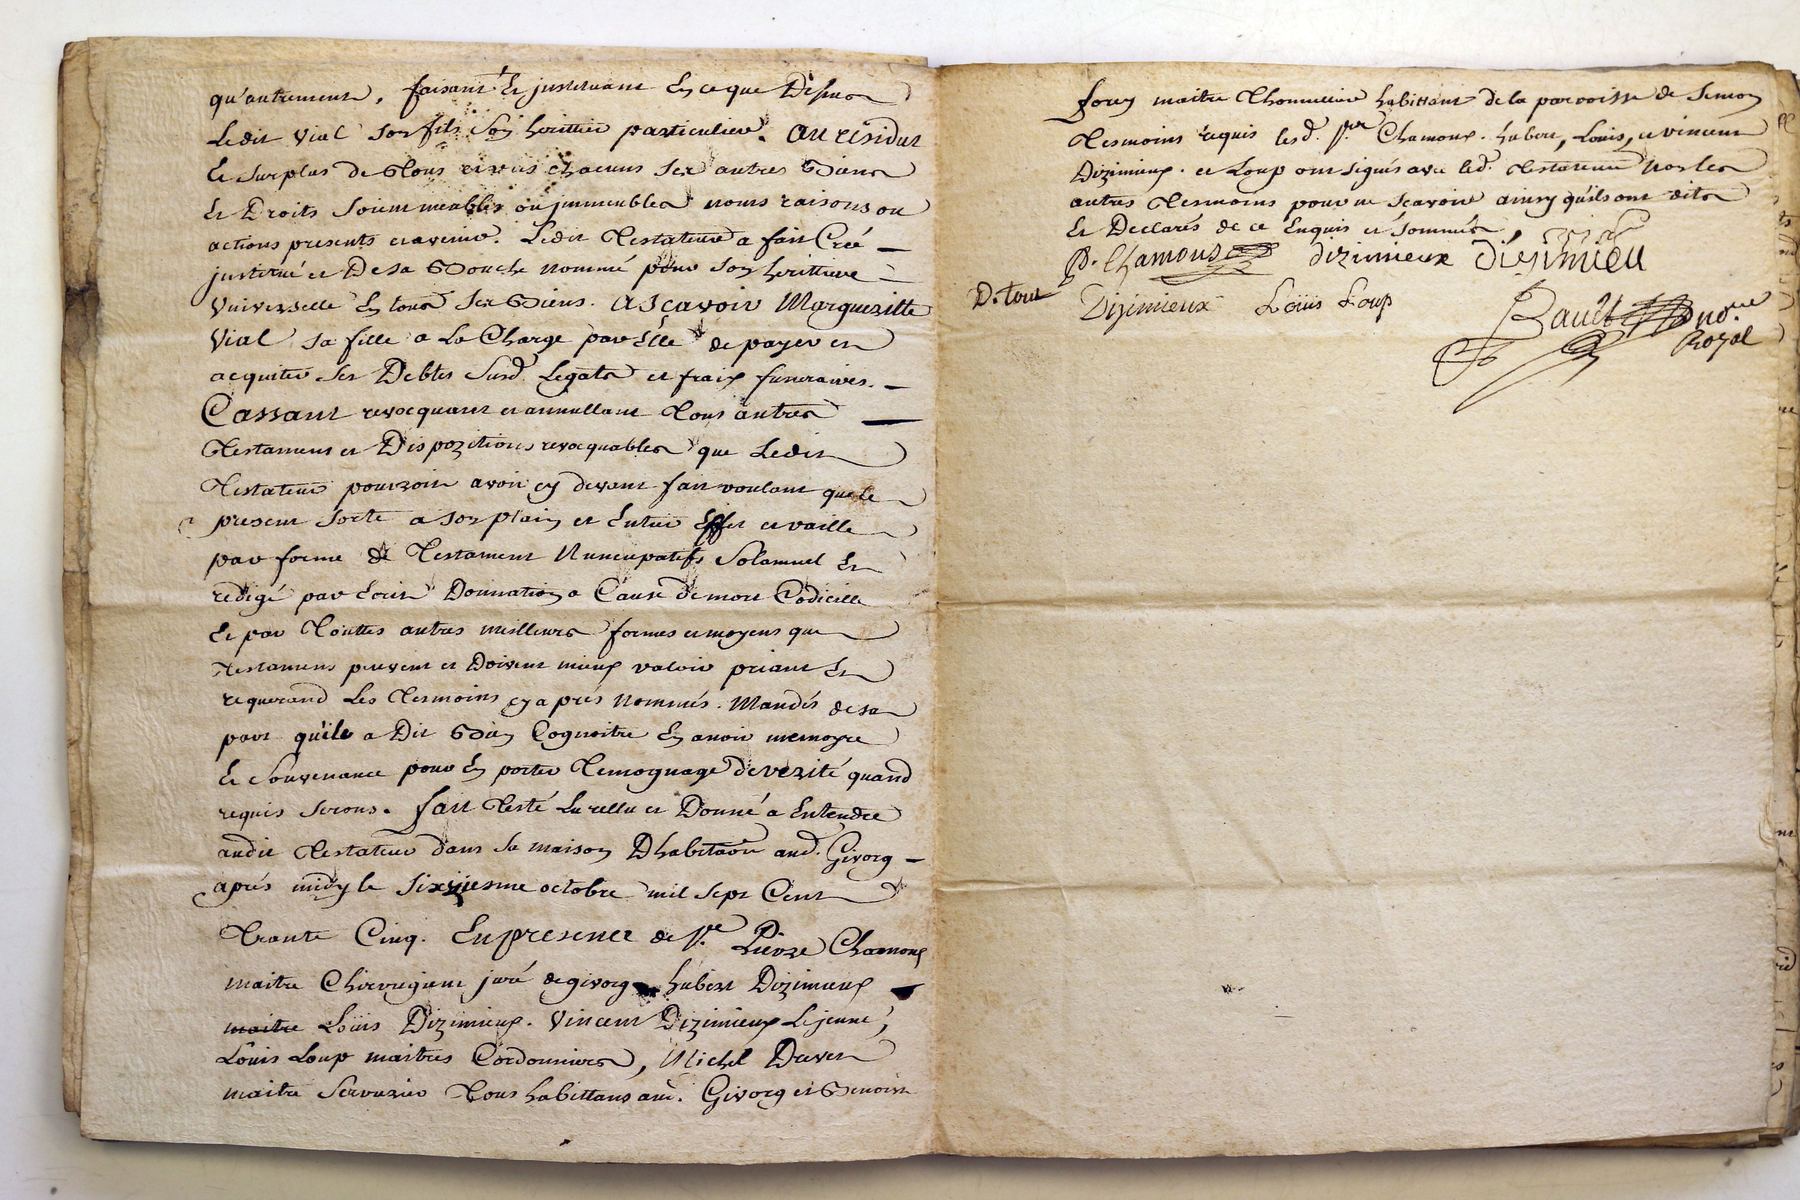 qu'autrement, faisant Et justituant En ce que Dessus
Ledit Vial son fils son heritier particulier. Au résidut
Et surplus de Tous et un chacuns ses autres Biens
Et Droits soient meubles ou jmmeubles noms raisons ou
actions presents et avenir. Ledit Testateur a fait Créé
justitué et De sa Bouche nommé pour son heritiere
Vniverselle En tous ses Biens. Asçavoir Margueritte
Vial sa fille a La Charge par Elle de payer et
acquiter ses Debtes susd. Legats et fraix funeraires.
Cassant revocquant et annullant Tous autres
Testament et Dispozitions revocquables que Ledit
Testateur pourroit avoir cy devant fait voulant que le
present sorte a son plain et Entier Effet et vaille
par forme de Testament Nuncupatifs Solamnel Et
redigé par Ecrit Donnation a Cause de mort Codicille
Et par Touttes autres meilleurs formes et moyens que
Testamens peuvent et Doivent mieux valoir priant Et
requerand Les Tesmoins cy aprés nommés. Mandés de sa
part qu'ils a Dit Bien Cognoitre En avoir memoyre
Et Souvenance pour En porter Temognage de verité quand
requis serons. fait Testé Lu rellu et Donné a Entendre
audit Testateur dans sa maison Dhabitaon aud. Givorg
aprés midy le sixziesme octobre mil sept Cent
Trante Cinq. En presence de Sr. Pierre Chamoux
maitre Chirurgient juré de givorg hubert Dizimieux
maitre Loüis Dizimieux. Vincent Dizimieux Le jeune,
Louis Loup maitres Cordonniers, Michel Drevet
maitre Serrurier Tous habittans aud. Givorg et Benoist
forey maitre Thonnellier habittant de la parroisse de Simon
Tesmoins requis lesd. Sr. Chamoux. hubert, Louis, et vincent
Dizimieux. et Loup ont signés avec led. Testateur Non les
autres Tesmoins pour ne scavoir ainsy qu'ils ont dits
Et Declarés de ce Enquis et sommés
P. Chamous dizimieux diesimieu
D. tout Dizimieux Loüis Loup
Bault no.re
Royal